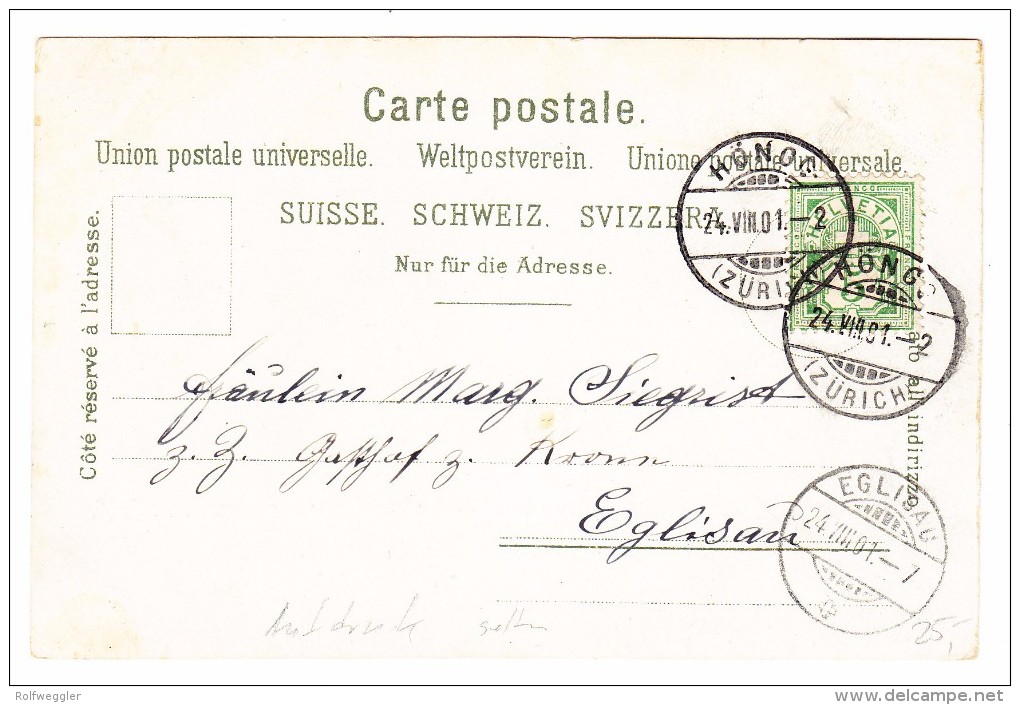 Carte postale.
Union postale universelle. Weltpostverein. Unione postale universale.
SUISSE. SCHWEIZ. SVIZZERA.
Nur für die Adresse.
Côté réservé à l'adresse.
lato all'indirizzo
HÖNGG
24.VIII.01.–2
(ZÜRICH)
FRANCO
HELVETIA
5
HÖNGG
24.VIII.01.–2
(ZÜRICH)
Fräulein Marg. Siegrist
z. Z. Gasthof z. Krone
Eglisau
EGLISAU
24.VIII.01.–7
Aufdruck selten
25,-
Rolfweggler
www.delcampe.net